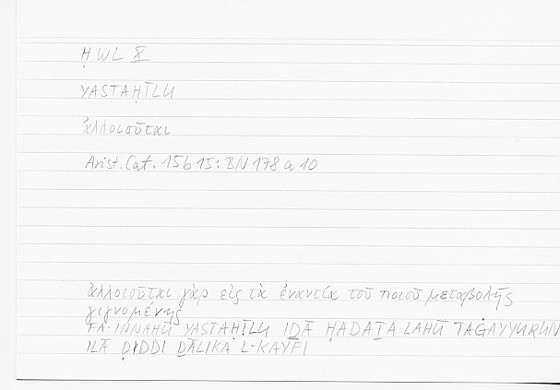 ḤWL X
YASTAḤĪLU
ἀλλοιοῦται
Arist. Cat. 15b15: BN 178 a 10
ἀλλοιοῦται γὰρ εἰς τὰ ἐναντία τοῦ ποιοῦ μεταβολῆς
γιγνομένης
FA-INNAHŪ YASTAḤĪLU IḎĀ ḤADAṮA LAHŪ TAĠAYYURUN
ILĀ ḌIDDI ḎĀLIKA L-KAYFI